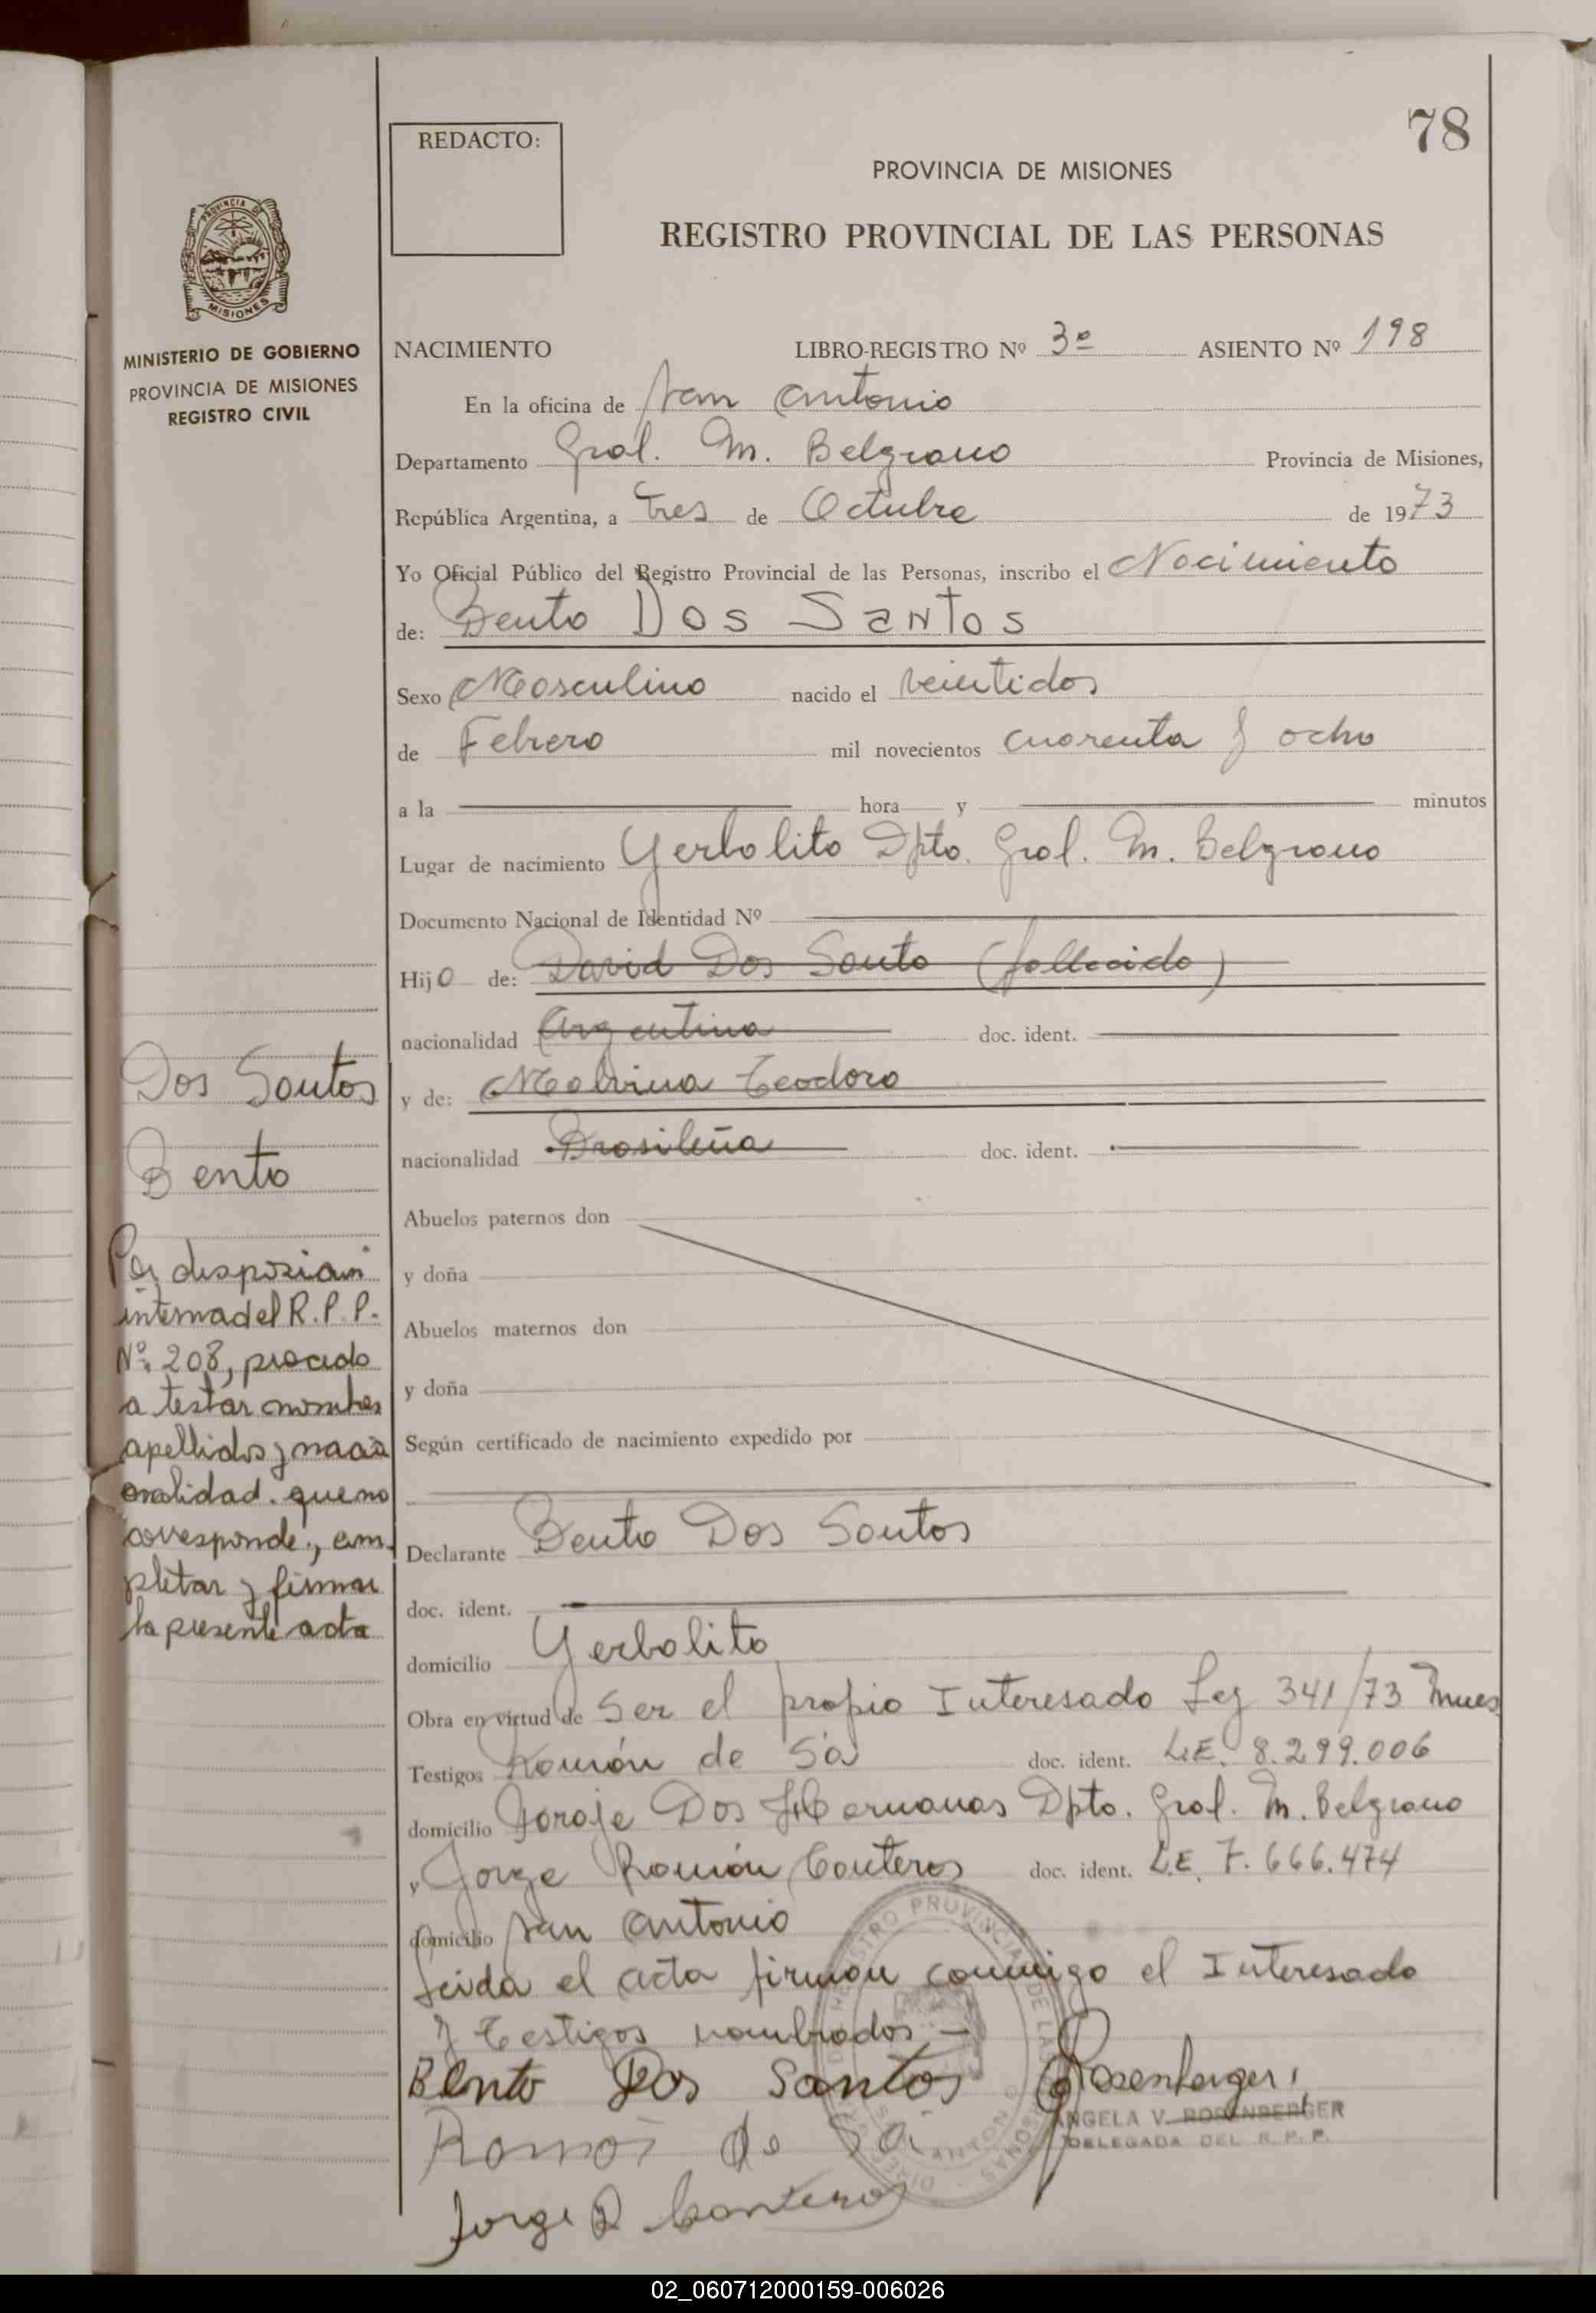 78
REDACTO:
PROVINCIA DE MISIONES
REGISTRO PROVINCIAL DE LAS PERSONAS
PROVINCIA DE
MISIONES
MINISTERIO DE GOBIERNO
PROVINCIA DE MISIONES
REGISTRO CIVIL
NACIMIENTO LIBRO-REGISTRO Nº 3º ASIENTO Nº 198
En la oficina de San Antonio
Departamento Gral. M. Belgrano Provincia de Misiones,
República Argentina, a tres de Octubre de 1973
Yo Oficial Público del Registro Provincial de las Personas, inscribo el Nacimiento
de: Bento Dos Santos
Sexo Masculino nacido el veintidos
de Febrero mil novecientos cuarenta y ocho
a la hora y minutos
Lugar de nacimiento Yerbalito Dpto. Gral. M. Belgrano
Documento Nacional de Identidad Nº
Hijo de: David Dos Santo (fallecido)
nacionalidad Argentina doc. ident.
y de: Malvina Teodoro
nacionalidad Brasileña doc. ident.
Abuelos paternos don
y doña
Abuelos maternos don
y doña
Según certificado de nacimiento expedido por
Declarante Bento Dos Santos
doc. ident.
domicilio Yerbalito
Obra en virtud de Ser el propio Interesado Ley 341/73
Testigos Ramón de Sá doc. ident. L.E. 8.299.006
domicilio Paraje Dos Hermanas Dpto. Gral. M. Belgrano
y Jorge Ramón Conteros doc. ident. L.E. 7.666.474
domicilio San Antonio
Leida el acta firman conmigo el Interesado
y Testigos nombrados -
Bento Dos Santos Rosenberger
ANGELA V. ROSENBERGER
DELEGADA DEL R. P. P.
Ramón de Sá
Jorge R Conteros
Dos Santos
Bento
Por disposicion
interna del R.P.P.
Nº 208, procedo
a testar nombres
apellidos y naci
onalidad que no
corresponde, com
pletar y firmar
la presente acta
02_060712000159-006026